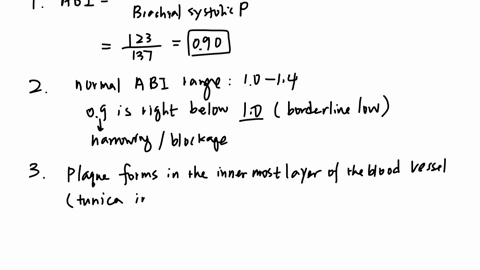 1. ABI =
Brachial systolic P
= 123/137 = 0.90
2. normal ABI range: 1.0-1.4
0.9 is right below 1.0 (borderline low)
narrowing / blockage
3. Plaque forms in the inner most layer of the blood vessel
(tunica i